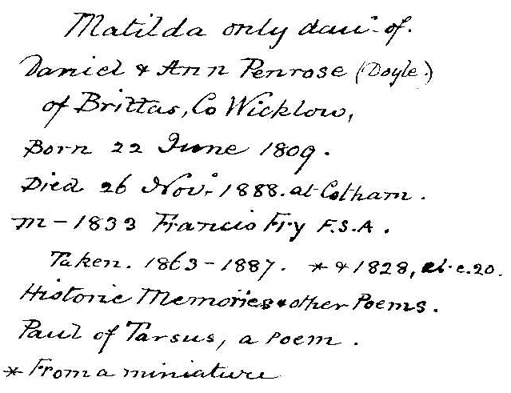 Matilda only daur. of.
Daniel & Ann Penrose (Doyle.)
of Brittas, Co Wicklow,
Born 22 June 1809.
Died 26 Novr. 1888. at Cotham.
m - 1833 Francis Fry F.S.A.
Taken. 1863-1887. * & 1828, æt. c. 20.
Historic Memories & other Poems.
Paul of Tarsus, a Poem.
* From a miniature